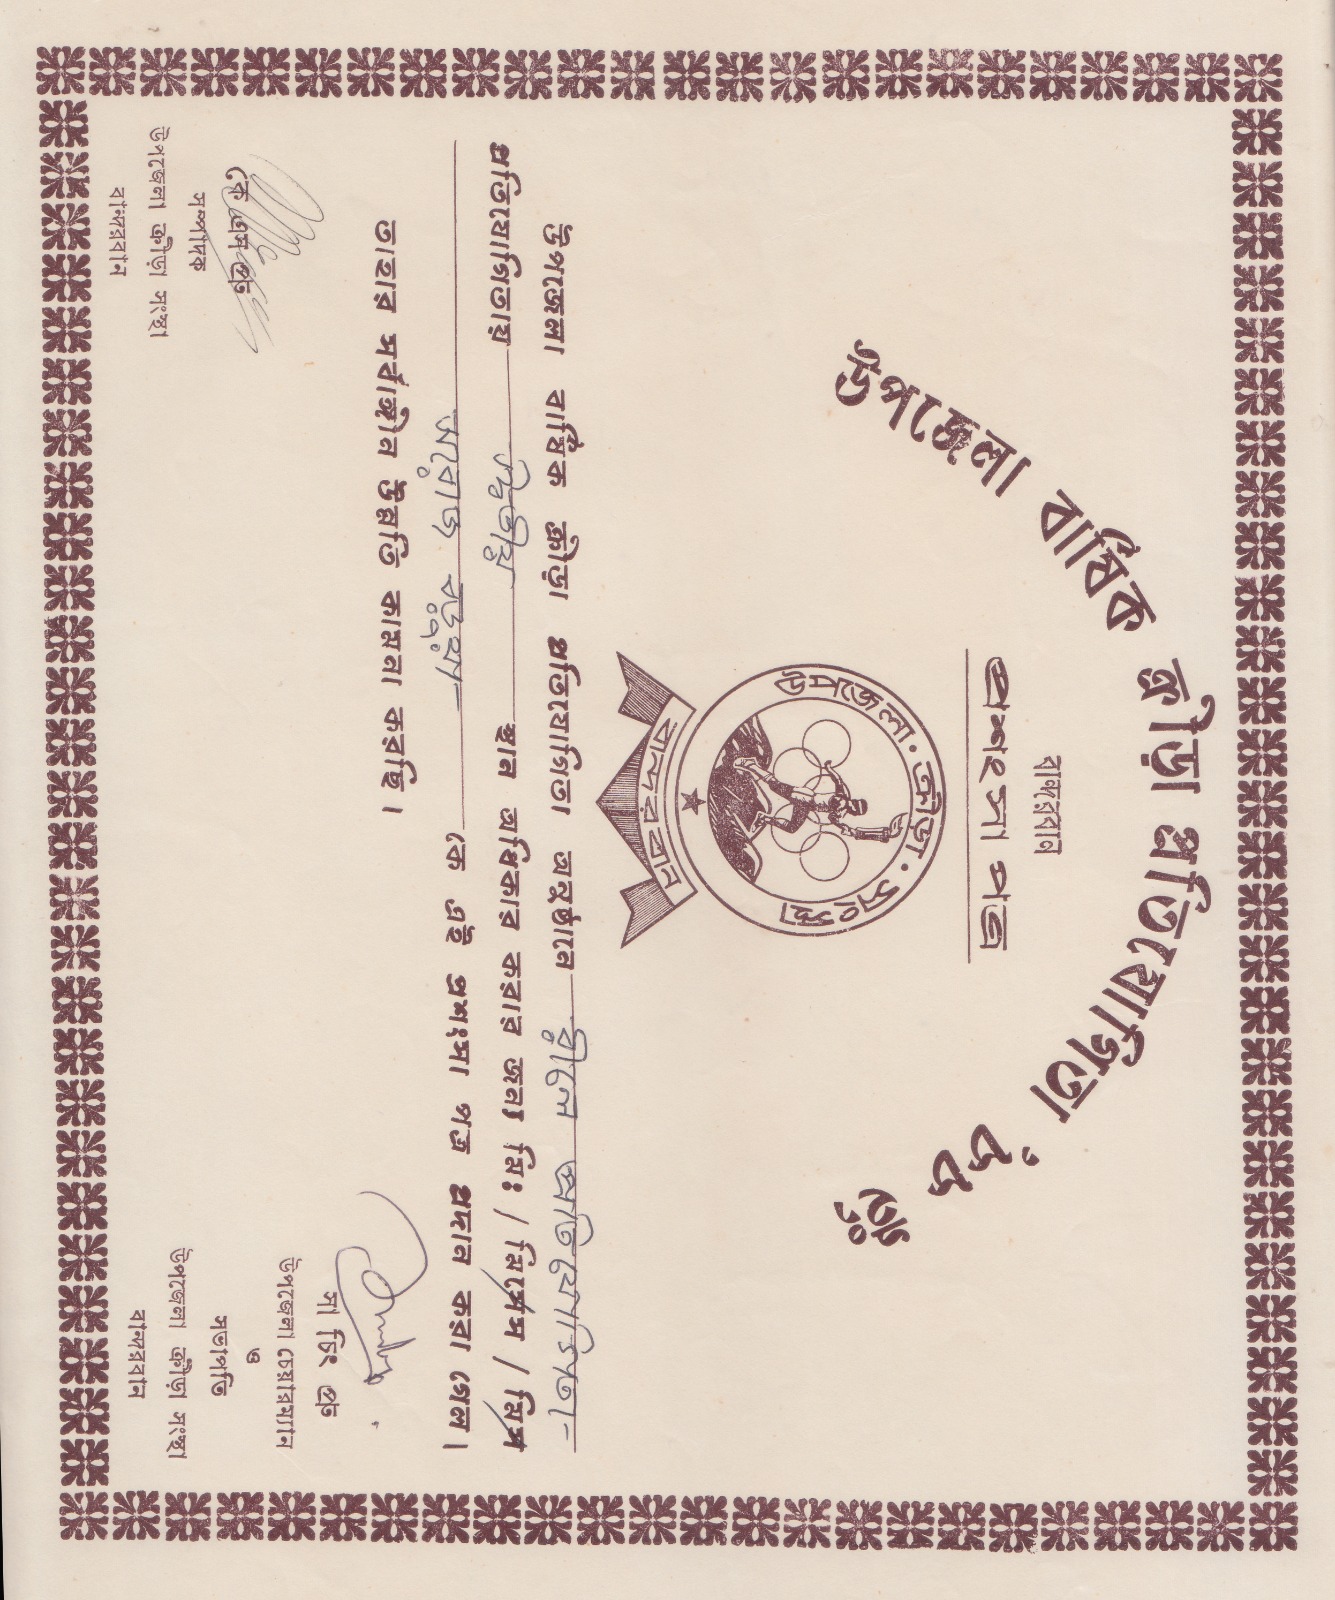 উপজেলা বার্ষিক ক্রীড়া প্রতিযোগিতা '৮৮ ইং
বান্দরবান
প্রশংসা পত্র
উপজেলা · ক্রীড়া · সংস্থা
বান্দরবান
উপজেলা বার্ষিক ক্রীড়া প্রতিযোগিতা অনুষ্ঠানে রীলে প্রতিযোগিতা
প্রতিযোগিতায় দ্বিতীয় স্থান অধিকার করার জন্য মিঃ / মিসেস / মিস
সরোজ বড়ুয়া কে এই প্রশংসা পত্র প্রদান করা গেল।
তাহার সর্বাঙ্গীন উন্নতি কামনা করছি।
সা চিং প্রু
উপজেলা চেয়ারম্যান
ও
সভাপতি
উপজেলা ক্রীড়া সংস্থা
বান্দরবান
কে এস প্রু
সম্পাদক
উপজেলা ক্রীড়া সংস্থা
বান্দরবান